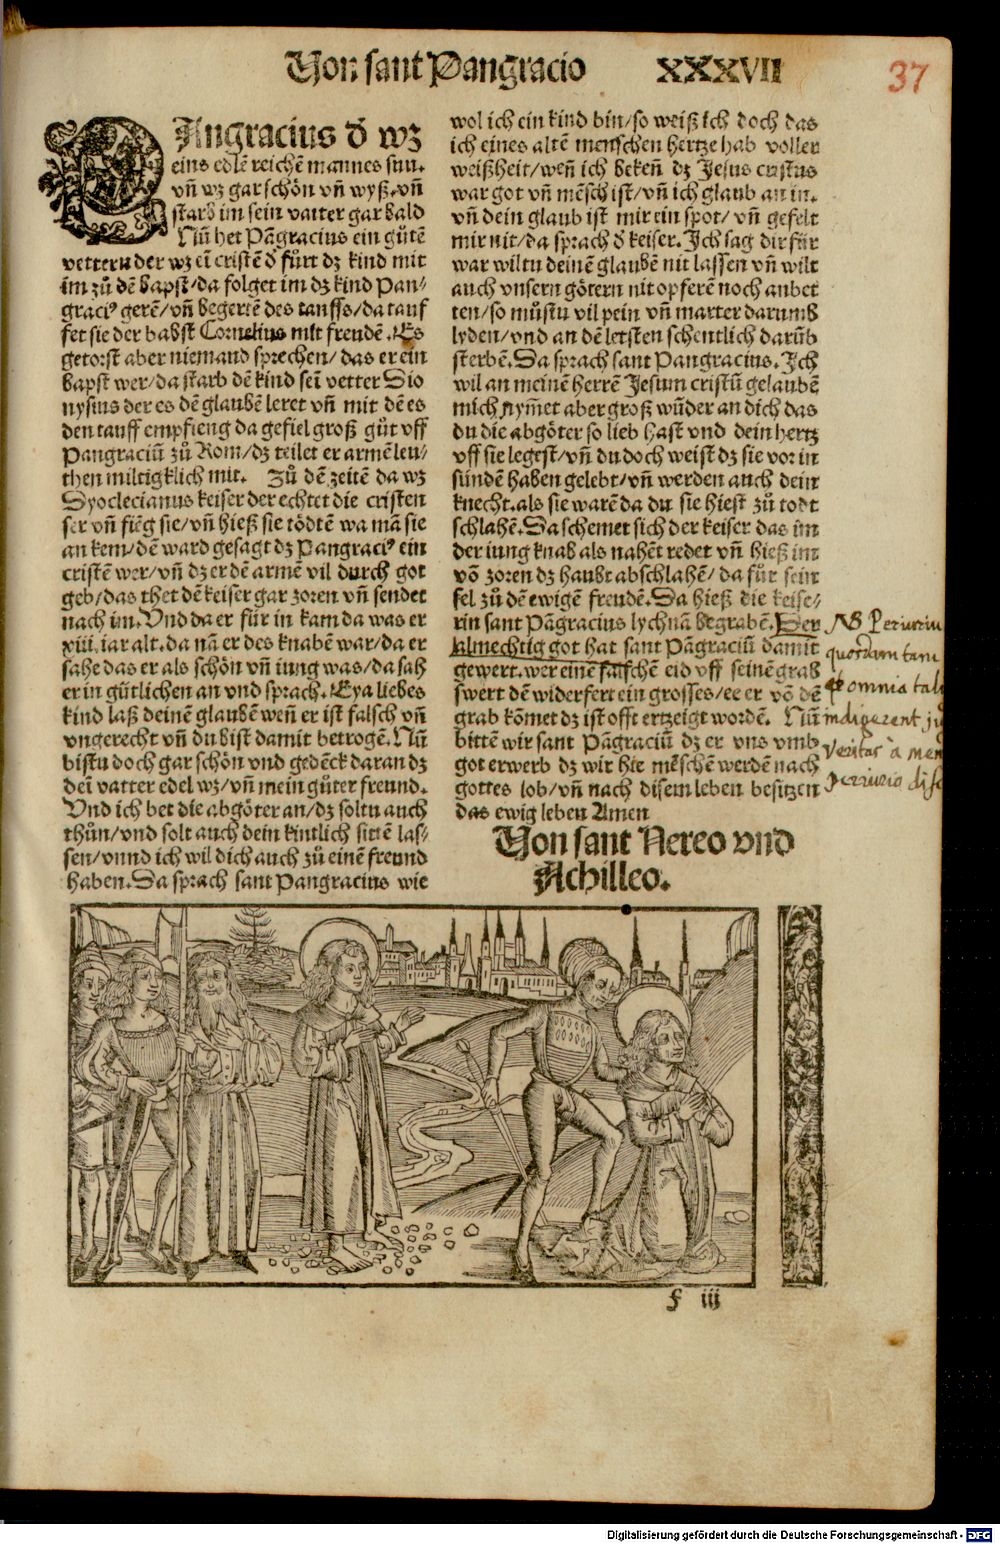 Von sant Pangracio XXXVII
37
PAngracius d̕ wz
eins edlē reichē mannes sun.
vn̄ wz gar schön vn̄ wyß. vn̄
starb im sein vatter gar bald
Nun̄ het Pāgracius ein gůtē
vettern der wz ein̄ cristē d̕ fůrt dz kind mit
im zů dē bapst/da folget im dz kind Pan-
graciꝰ gerē/vn̄ begertē des tauffs/da tauf
fet sie der babst Cornelius mit freudē. Es
getorst aber niemand sprechen/das er ein
bapst wer/da starb dē kind sei̅ vetter Dio
nysius der es dē glaubē leret vn̄ mit dē es
den tauff empfieng da gefiel groß gůt vff
Pangraciū zů Rom/dz teilet er armē leu-
then miltigklich mit. Zů dē zeitē da wz
Dyoclecianus keiser der echtet die cristen
ser vn̄ fiēg sie/vn̄ hieß sie tödtē wa mā sie
an kem/dē ward gesagt dz Pangraciꝰ ein
cristē wer/vn̄ dz er dē armē vil durch got
geb/das thet dē keiser gar zoren vn̄ sendet
nach im. Vnd da er für in kam da was er
xiiii. iar alt. da nā er des knabē war/da er
sahe das er als schön vn̄ iung was/da sah
er in gütlichen an vnd sprach. Eya liebes
kind laß deinē glaubē wen̄ er ist falsch vn̄
vngerecht vn̄ du bist damit betrogē. Nū
bistu doch gar schön vnd gedēck daran dz
dei̅ vatter edel wz/vn̄ mein gůter freund.
Vnd ich bet die abgöter an/dz soltu auch
thůn/vnd solt auch dein kintlich sittē las-
sen/vnnd ich wil dich auch zů einē freund
haben. Da sprach sant Pangracius wie
wol ich ein kind bin/so weiß ich doch das
ich eines altē menschen hertze hab voller
weißheit/wen̄ ich beken̄ dz Jesus cristus
war got vn̄ mēsch ist/vn̄ ich glaub an in.
vn̄ dein glaub ist mir ein spot/vn̄ gefelt
mir nit/da sprach d̕ keiser. Ich sag dir für
war wiltu deinē glaubē nit lassen vn̄ wilt
auch vnsern götern nit opferē noch anbet
ten/so můstu vil pein vn̄ marter darumb
lyden/vnd an dē letsten schentlich darūb
sterbē. Da sprach sant Pangracius. Ich
wil an meinē herrē Jesum cristū gelaubē
mich nym̄et aber groß wūder an dich das
du die abgöter so lieb hast vnd dein hertz
vff sie legest/vn̄ du doch weist dz sie vor in
sünden haben gelebt/vn̄ werden auch dein
knecht. als sie warē da du sie hiest zů todt
schlahē. Da schemet sich der keiser das im
der iung knab als nahēt redet vn̄ hieß im
vō zoren dz haubt abschlahē/da fůr sein
sel zů dē ewigē freudē. Da hieß die keise-
rin sant Pāgracius lychnā begrabē. Der
almechtig got hat sant Pāgraciū damit
gewert. wer einē falschē eid vff seinē grab
swert dē widerfert ein grosses/ee er vō dē
grab kōmet dz ist offt ertzeigt wordē. Nū
bittē wir sant Pāgraciū dz er vns vmb
got erwerb dz wir hie mēschē werdē nach
gottes lob/vn̄ nach disem leben besitzen
das ewig leben Amen
NB Periuriu
quordam tam
omnia tal
indigerent ju
veritas à men
periurio disc
Von sant Nereo vnd
Achilleo.
f iij
Digitalisierung gefördert durch die Deutsche Forschungsgemeinschaft - DFG